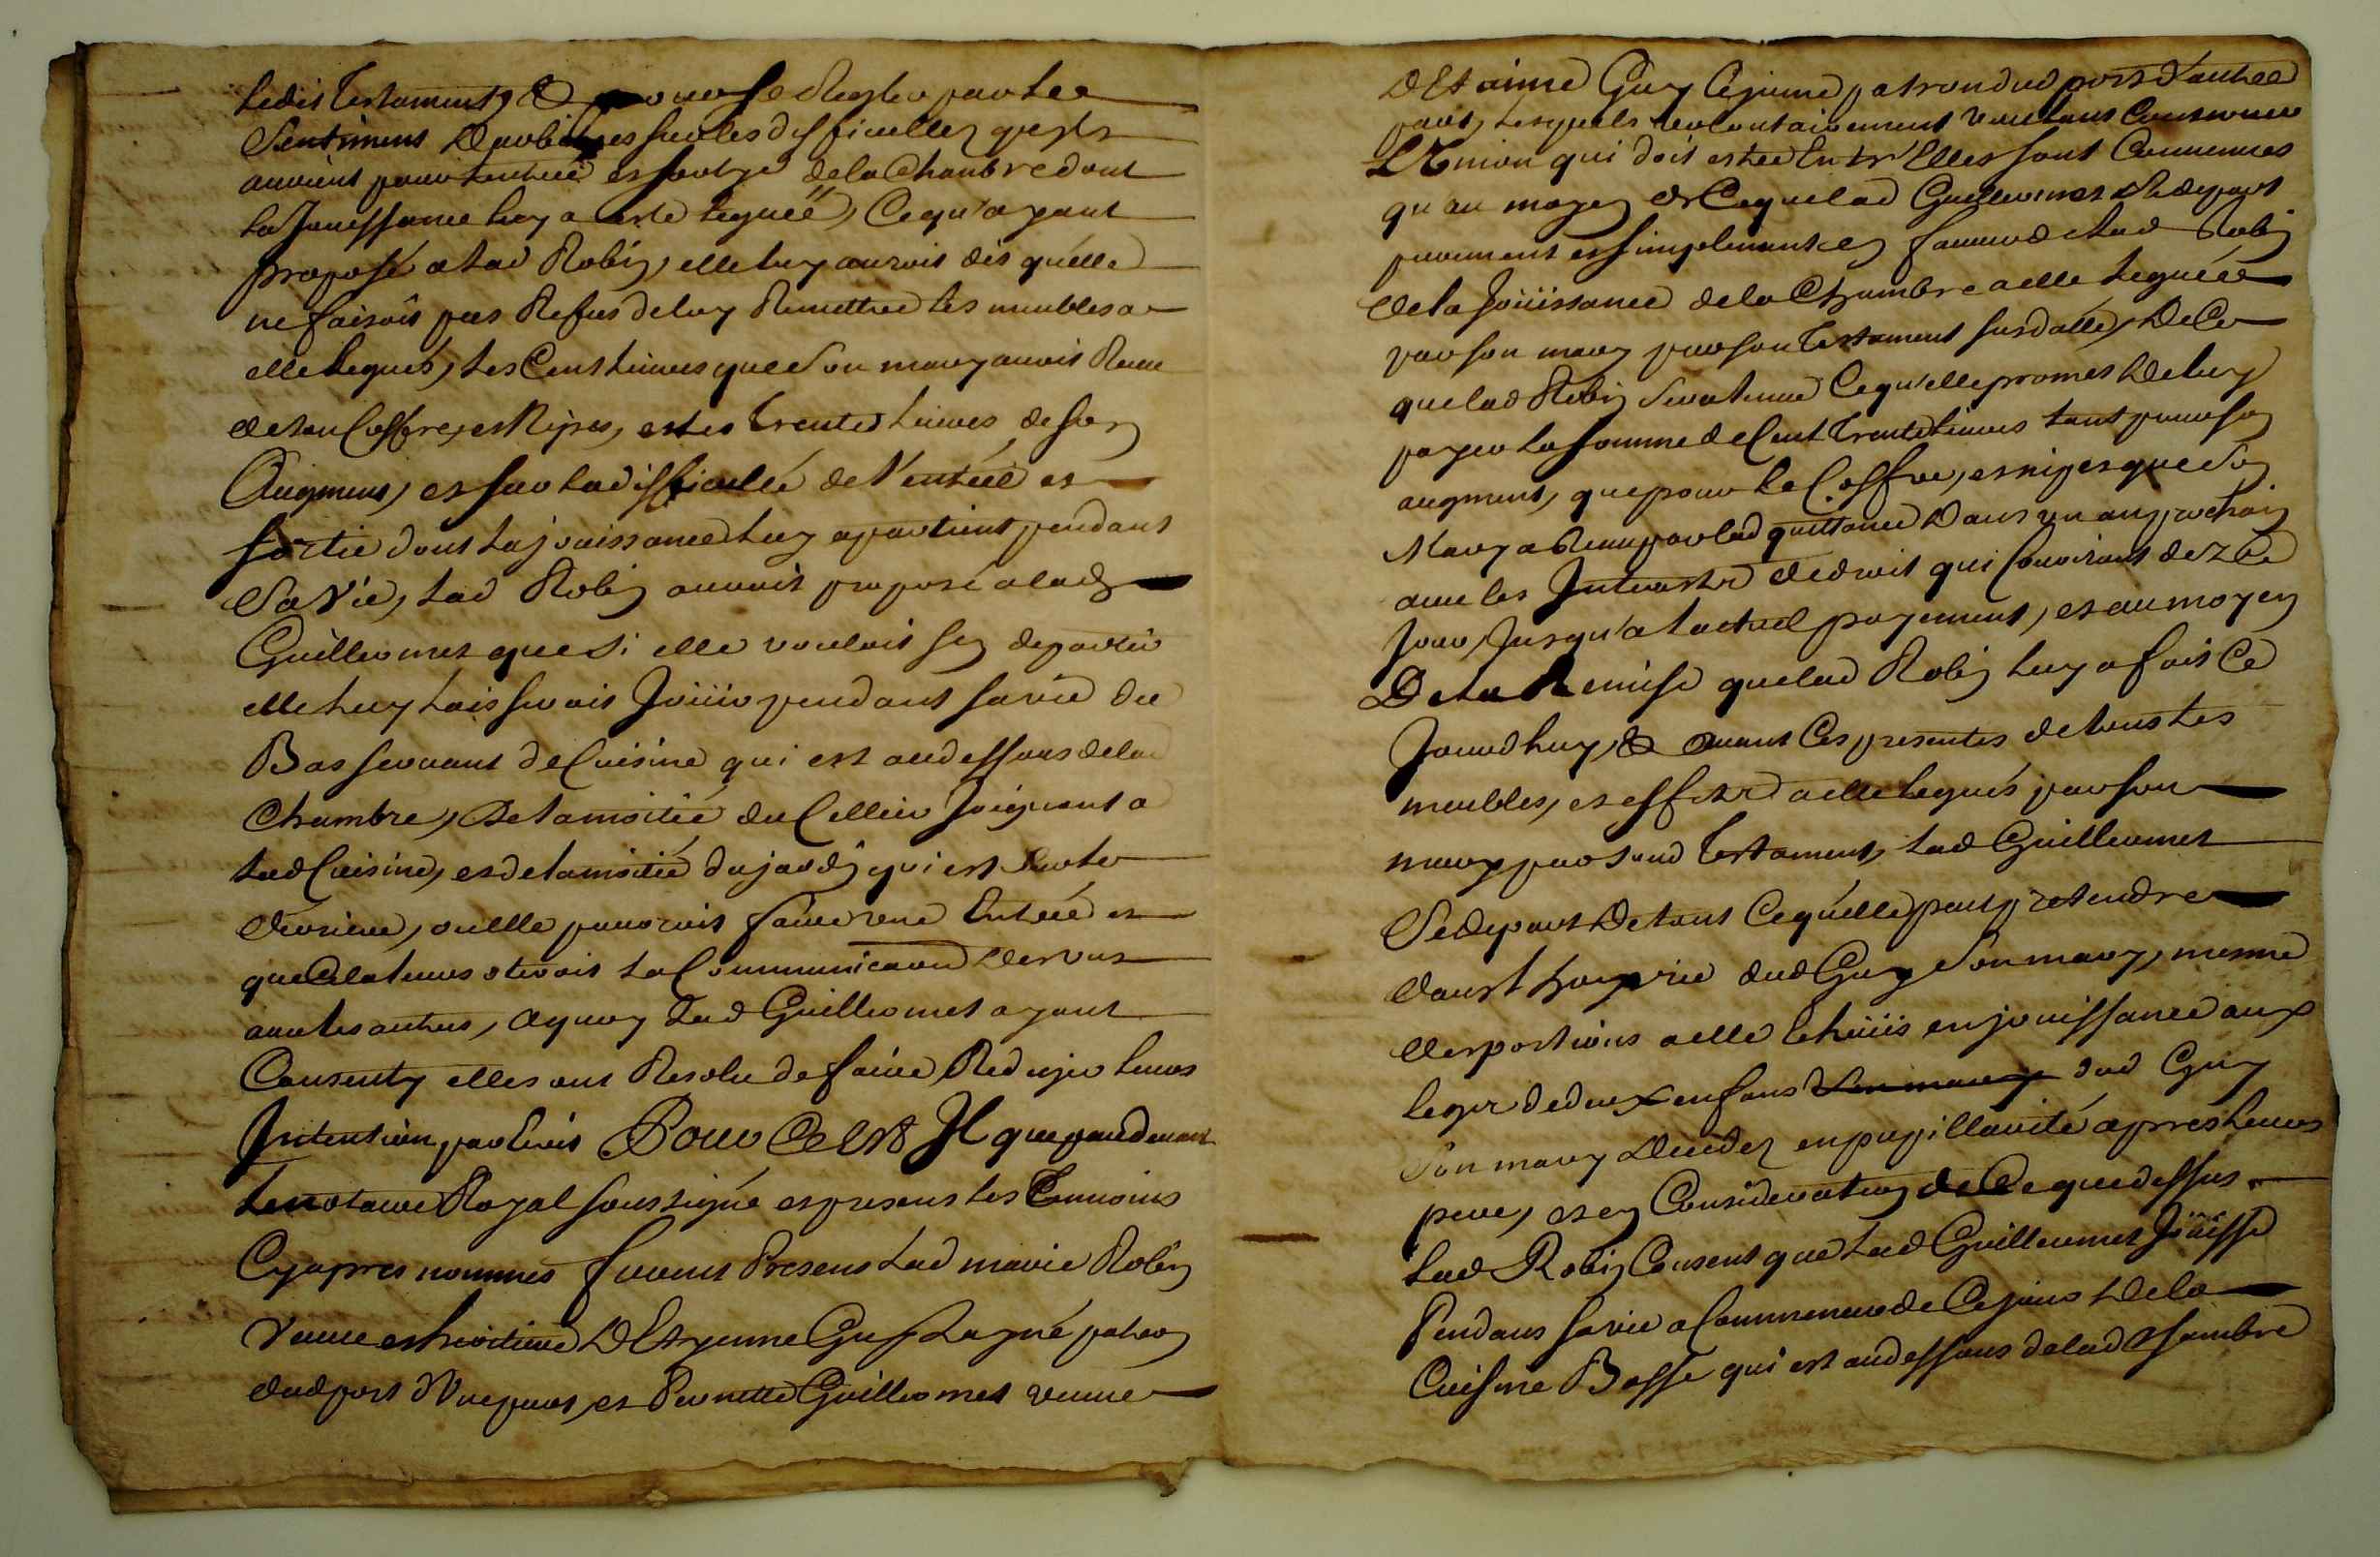 ledit Testament, & pour se Regler par les
Sentimens D'arbitres sur les difficultez quelles
auroient pour lentrée et sortye de la Chambre dont
la Jouissance luy a esté leguéé, Ce qu'ayant
proposé a lad Robin, elle luy auroit dit qu'elle
ne faisoit pas Refus de luy Remettre les meubles a
elle legués, les Cent livres que Son mary avoit Receu
de son Coffre, et Nipes, et les trente livres de son
Augment, et sur la difficulté de l'entréé et
sortie dont la jouissance luy apartient pendant
Sa Vie, lad Robin auroit proposé a lad
Guilliermet que Si elle vouloit sen departir
elle luy laisseroit Joüir pendant sa vie du
Bas servant de Cuisine qui est au dessous de lad
Chambre, de la moitié du Cellier Joignant a
lad Cuisine, et de la moitié du jardin qui est sur le
derriere, ou elle pouroit faire une Entréé et
que Cela leur oteroit la Communicaon des unes
avec les autres, a quoy lad Guilliermet ayant
Consenty elles ont Resolu de faire Rediger leurs
Intention par Ecrit Pour Ce Est Il que pardevant
le notaire Royal soussigné et presens les Temoins
Cy apres nommés furent Presens lad marie Robin
Veuve et heritiere D'Etyenne Guy Layné patron
dud port d'Une part, et Pernette Guilliermet veuve
D'Etienne Guy le jeune patron dud port d'autre
part, Lesquels volontairement voulant Conserver
L'Union qui doit estre Entr'Elles sont Convenues
qu'au moyen de Ce que lad Guilliermet Se depart
purement et simplement en faveur de lad Robin
de la Joüissance de la Chambre a elle leguéé
par son mary par son Testament susdatté, De Ce
que lad Robin Sera tenue Ce qu'elle promet De luy
payer la somme de Cent Trente livres tant pour son
augment, que pour le Coffre, et nipes que Son
Mary a Receu par lad quittance Dans un an prochain
avec les Interests de droit qui Couriront dez Ce
Jour, Jusqu'a lactuel payement, et au moyen
De la Remise que lad Robin luy a fait Ce
Jourdhuy, & avant Ces presentes de tous les
meubles, et effets a elle legués par son
mary par sond Testament, lad Guilliermet
Se depart De tout Ce qu'elle peut pretendre
dans l'hoyrie dud Guy Son mary, mesme
des portions a elle Echüis en jouissance aux
legs de deux enfans Son mary dud Guy
Son mary Decedez en pupillarité apres leur
pere, et en Consideration de Ce que dessus
lad Robin Consent que lad Guilliermet Joüisse
Pendant sa vie a Commencer de Ce jour De la
Cuisine Basse qui est au dessous de lad Chambre